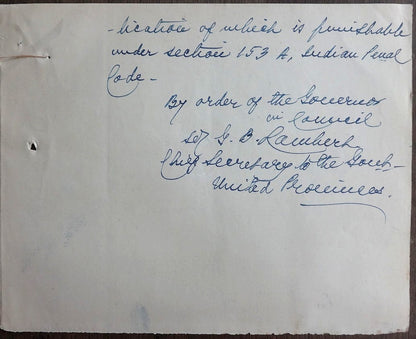 -lication of which is punishable
under section 153 A, Indian Penal
Code -
By order of the Governor
in Council
Sd/ G. B Lambert
Chief Secretary to the Govt -
United Provinces.